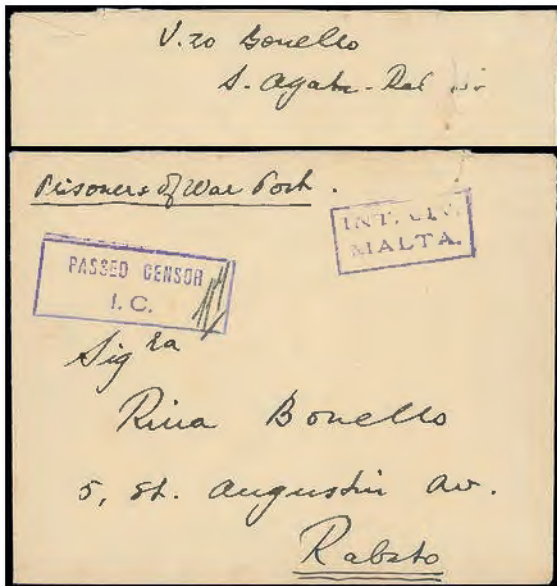 V.zo Bonello
S. Agata - Rabato
Prisoners of War Post.
INT. CIV.
MALTA.
PASSED CENSOR
I.C.
Sig ra
Rina Bonello
5, St. Augustin Av.
Rabato